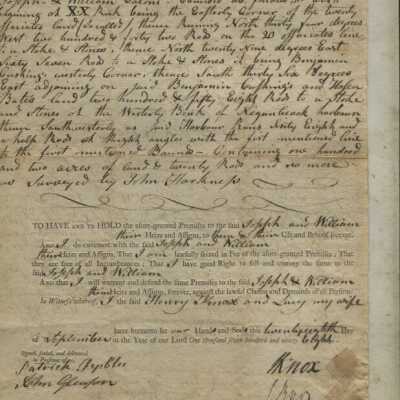 Joseph & William
being the Easterly Corner of the twenty
thence Running North thirty four degrees
West two hundred & forty two Rod on the 20
to a Stake & Stones, thence North twenty Nine degrees East
Sixty Seven Rod to a Stake & Stones it being Benjamin
Cushing's westerly Corner, thence South thirty Six Degrees
East adjoining on said Benjamin Cushing's and
Bates land two hundred & fifty Eight Rod to a Stake
and Stones at the Westerly Bank of harbour
thence Southwesterly as said Harbour Sixty Eight and
a half Rod at Right angles with the first mentioned line
to the first mentioned Bounds — Containing one hundred
and two acres of land & twenty Rod and no more
as Surveyed by John Harkness
TO HAVE and TO HOLD the afore-granted Premises to the said Joseph and William
their Heirs and Assigns, to them & their Use and Behoof forever.
And I do covenant with the said Joseph and William
their Heirs and Assigns, That I am lawfully seized in Fee of the afore-granted Premises: That
they are free of all Incumbrances: That I have good Right to sell and convey the same to the
said Joseph and William
And that I will warrant and defend the same Premises to the said Joseph & William
their Heirs and Assigns, forever, against the lawful Claims and Demands of all Persons.
In Witness whereof, I the said Henry Knox and Lucy my wife
have hereunto set our Hands and Seals this twenty eighth Day
of September in the Year of our Lord One thousand seven hundred and ninety Eight
Signed, sealed, and delivered
in Presence of us,
Patrick
John Gleason
HKnox
Knox